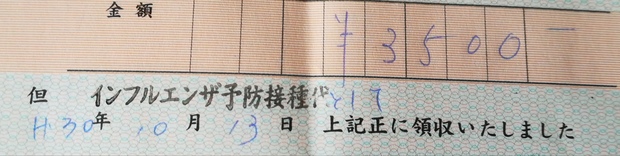 金額 ¥3500−
但 インフルエンザ予防接種代として
H.30年 10月 13日 上記正に領収いたしました